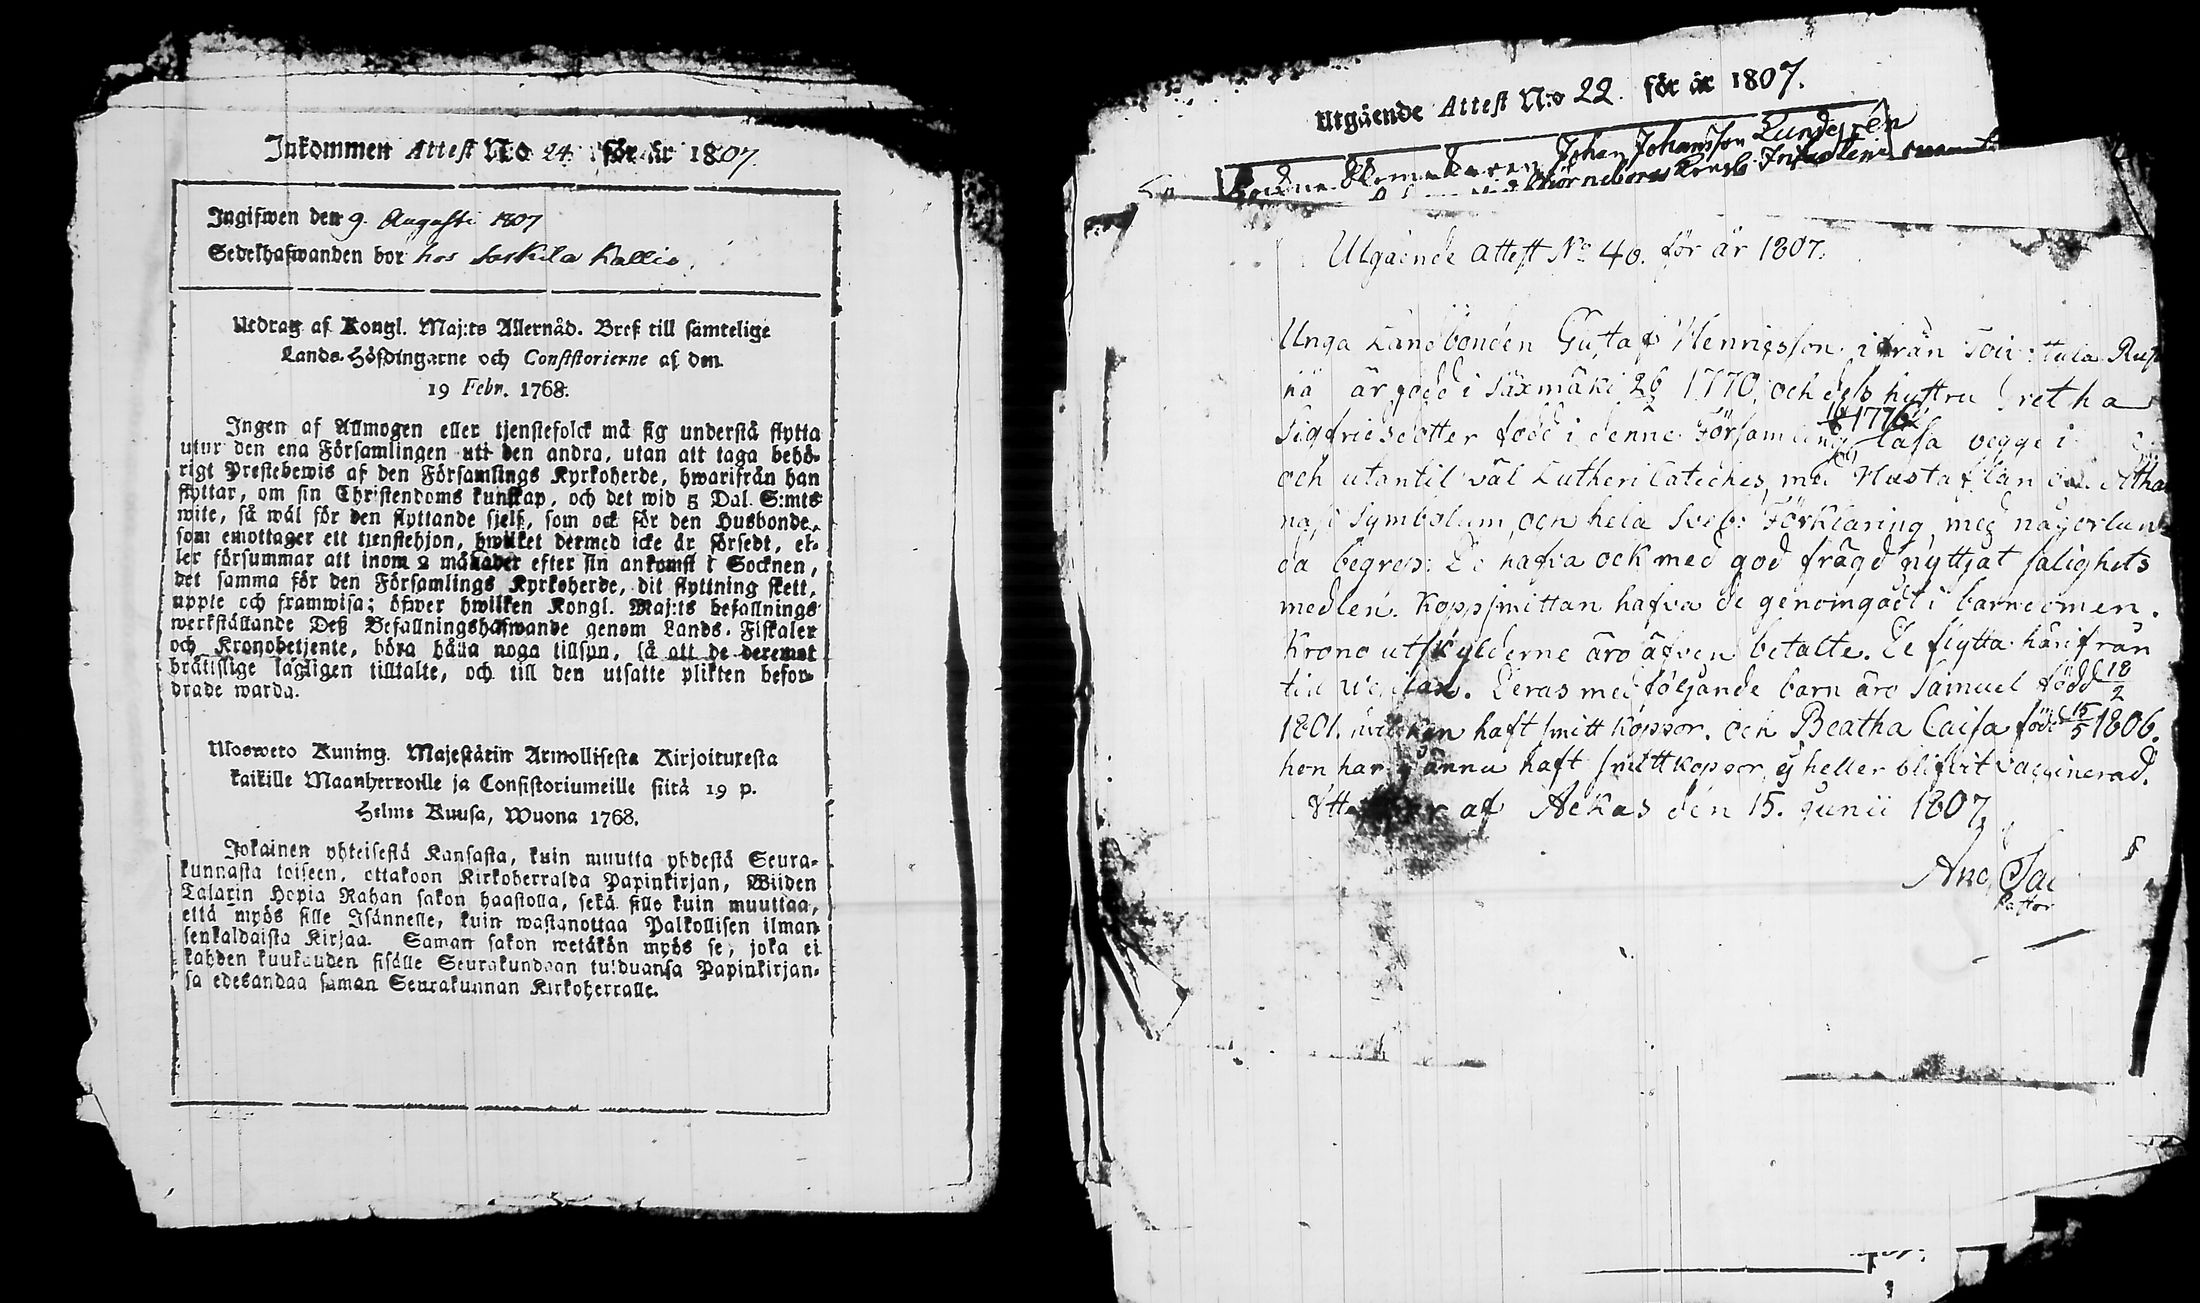 Inkommen Attest No 24. för år 1807.
Ingifwen den 9. Augusti 1807
Sedelhafwanden bor hos Saskila Kallio.
Utdrag af Kongl. Maj:ts Allernåd. Bref till samtelige
Lands-Höfdingarne och Consistorierne af den
19 Febr. 1768.
Ingen af Allmogen eller tjenstefolck må sig understå flytta
utur den ena Församlingen uti den andra, utan att taga behö-
rigt Prestebewis af den Församlings Kyrkoherde, hwarifrån han
flyttar, om sin Christendoms kunskap, och det wid 5 Dal. S:mts
wite, så wäl för den flyttande sjelf, som ock för den Husbonde,
som emottager ett tjenstehjon, hwilket dermed icke är försedt, el-
ler försummar att inom 2 månader efter sin ankomst i Socknen,
det samma för den Församlings Kyrkoherde, dit flyttning skett,
uppte och framwisa; öfwer hwilken Kongl. Maj:ts befallnings
werkställande Deß Befallningshafwande genom Lands-Fiskaler
och Kronobetjente, böra hålla noga tillsyn, så att de deremot
brätislige lagligen tilltalte, och till den utsatte plikten befor-
drade warda.
Ulosweto Kuning. Majestätin Armollisesta Kirjoituxesta
kaikille Maanherroille ja Consistoriumeille siitä 19 p.
Helme Kuusa, Wuona 1768.
Jokainen yhteisestä Kansasta, kuin muutta yhdestä Seura-
kunnasta toiseen, ottakoon Kirkoherralda Papinkirjan, Wiiden
Talarin Hopia Rahan sakon haastolla, sekä sille kuin muuttaa,
että myös sille Isännelle, kuin wastanottaa Palkollisen ilman
senkaldaista Kirjaa. Saman sakon wetäkön myös se, joka ei
kahden kuukauden sisälle Seurakundaan tulduansa Papinkirjan-
sa edesandaa saman Seurakunnan Kirkoherralle.
Utgående Attest N:o 22. för år 1807.
Johan Johansson Lundgren
Utgående attest No 40. för år 1807.
Unga Landbonden Gustaf Henricsson ifrån
är född i Säxmäki 1770, och dess hustru Gretha
Sigfriedsdotter född i denne Församling 1776 läsa begge i
och utantil väl Lutheri Cateches, med Hustaflan och Atha
nasii Symbolum och hela Sveb: Förklaring, med någorlun
da begrep. De hafva ock med god frägd nyttjat salighets
medlen. Koppsmittan hafva de genomgådt i barndomen.
Krono utskylderne äro äfven betalte. De flytta härifrån
till. Deras medföljande barn äro Samuel född 18/2
1801. hvilken haft smitt koppor. och Beatha Caisa född 15/5 1806.
hon har ej ännu haft smittkoppor, ej heller blifvit vaccinerad.
af Ackas den 15. Junii 1807
Pastor